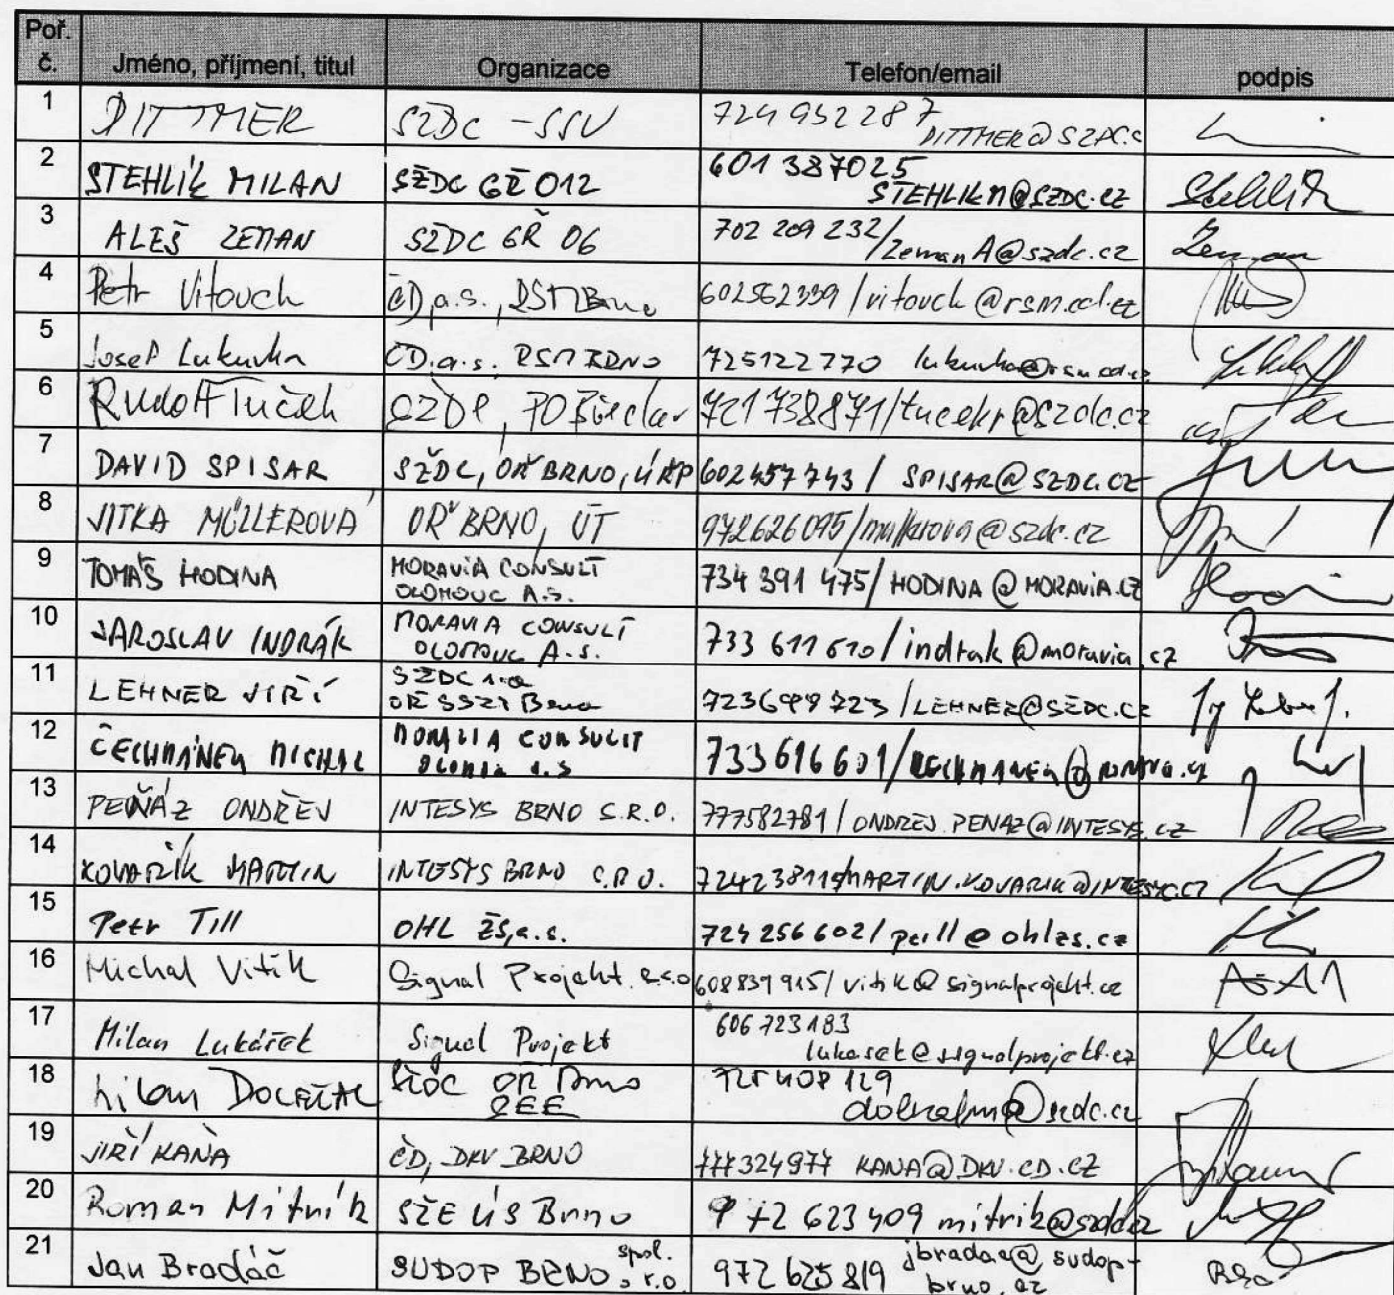 Poř. č. Jméno, příjmení, titul Organizace Telefon/email podpis
1 DITTMER SŽDC - SSV 724 952 287 DITTMER@SZDC.C
2 STEHLÍK MILAN SŽDC GŘ O12 601 387025 STEHLIKM@SZDC.CZ Stehlík
3 ALEŠ ZEMAN SŽDC GŘ O6 702 209 232/ZemanA@szdc.cz Zeman
4 Petr Vitouch ČD, a.s., RSM Brno 602562339/vitouch@rsm.cd.cz
5 Josef ČD, a.s. RSM BRNO 725122770
6 Rudolf Tuček SŽDC, PO Břeclav 721738871/tucekr@szdc.cz
7 DAVID SPISAR SŽDC, OŘ BRNO, ÚŘP 602457743 / SPISAR@SZDC.CZ
8 JITKA MÜLLEROVÁ OŘ BRNO, ÚT 972626095/mullerova@szdc.cz
9 TOMÁŠ HODINA MORAVIA CONSULT OLOMOUC A.S. 734 391 475/ HODINA@MORAVIA.CZ
10 JAROSLAV INDRÁK MORAVIA CONSULT OLOMOUC A.S. 733 611 610/ indrak@moravia.cz
11 LEHNER JIŘÍ SŽDC s.o OŘ SSZT Brno 723699723/LEHNER@SZDC.CZ
12 ČECHMÁNEK MICHAL MORAVIA CONSULT 733616601/
13 PEŇÁZ ONDŘEJ INTESYS BRNO S.R.O. 777582781/ONDREJ.PENAZ@INTESYS.CZ
14 KOVAŘÍK MARTIN INTESYS BRNO S.R.O. MARTIN.KOVARIK@INTESYS.CZ
15 Petr Till OHL ŽS, a.s. 724 256 602/ ptill@ohlzs.cz
16 Michal Vitík Signal Projekt s.r.o 608839915/ vitik@signalprojekt.cz
17 Milan Lukášek Signal Projekt 606 723 183 lukasek@signalprojekt.cz
18 Milan DOLEŽAL SŽDC OŘ Brno SEE 725 408 129
19 JIŘÍ KAŇA ČD, DKV BRNO 777324977 KANA@DKV.CD.CZ
20 Roman Mitrík SŽE ÚS Brno 972 623 409
21 Jan Bradáč SUDOP BRNO spol. s r.o. 972 625 819 jbradac@sudop-brno.cz